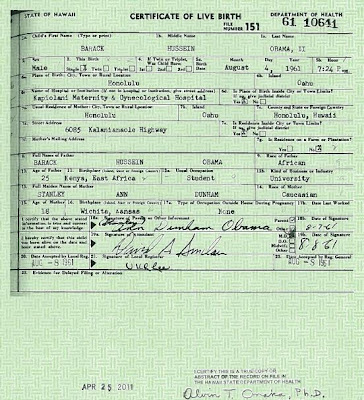 STATE OF HAWAII CERTIFICATE OF LIVE BIRTH DEPARTMENT OF HEALTH
FILE NUMBER 151 61 10641
1a. Child's First Name (Type or print) 1b. Middle Name 1c. Last Name
BARACK HUSSEIN OBAMA, II
2. Sex 3. This Birth 4. If Twin or Triplet, Was Child Born 5a. Birth Date Month Day Year 5b. Hour
Male Single Twin Triplet 1st 2nd 3rd August 4, 1961 7:24 P.
6a. Place of Birth: City, Town or Rural Location 6b. Island
Honolulu Oahu
6c. Name of Hospital or Institution (If not in hospital or institution, give street address) 6d. Is Place of Birth Inside City or Town Limits?
If no, give judicial district
Kapiolani Maternity & Gynecological Hospital Yes No
7a. Usual Residence of Mother: City, Town or Rural Location 7b. Island 7c. County and State or Foreign Country
Honolulu Oahu Honolulu, Hawaii
7d. Street Address 7e. Is Residence Inside City or Town Limits?
If no, give judicial district
6085 Kalanianaole Highway Yes No
7f. Mother's Mailing Address 7g. Is Residence on a Farm or Plantation?
Yes No
8. Full Name of Father 9. Race of Father
BARACK HUSSEIN OBAMA African
10. Age of Father 11. Birthplace (Island, State or Foreign Country) 12a. Usual Occupation 12b. Kind of Business or Industry
25 Kenya, East Africa Student University
13. Full Maiden Name of Mother 14. Race of Mother
STANLEY ANN DUNHAM Caucasian
15. Age of Mother 16. Birthplace (Island, State or Foreign Country) 17a. Type of Occupation Outside Home During Pregnancy 17b. Date Last Worked
18 Wichita, Kansas None
I certify that the above stated information is true and correct to the best of my knowledge. 18a. Signature of Parent or Other Informant Parent Other 18b. Date of Signature
Ann Dunham Obama 8-7-61
I hereby certify that this child was born alive on the date and hour stated above. 19a. Signature of Attendant M.D. D.O. Midwife Other 19b. Date of Signature
David A Sinclair 8-8-61
20. Date Accepted by Local Reg. 21. Signature of Local Registrar 22. Date Accepted by Reg. General
AUG -8 1961 U K Lee AUG -8 1961
23. Evidence for Delayed Filing or Alteration
APR 25 2011
I CERTIFY THIS IS A TRUE COPY OR
ABSTRACT OF THE RECORD ON FILE IN
THE HAWAII STATE DEPARTMENT OF HEALTH
Alvin T. Onaka, Ph.D.